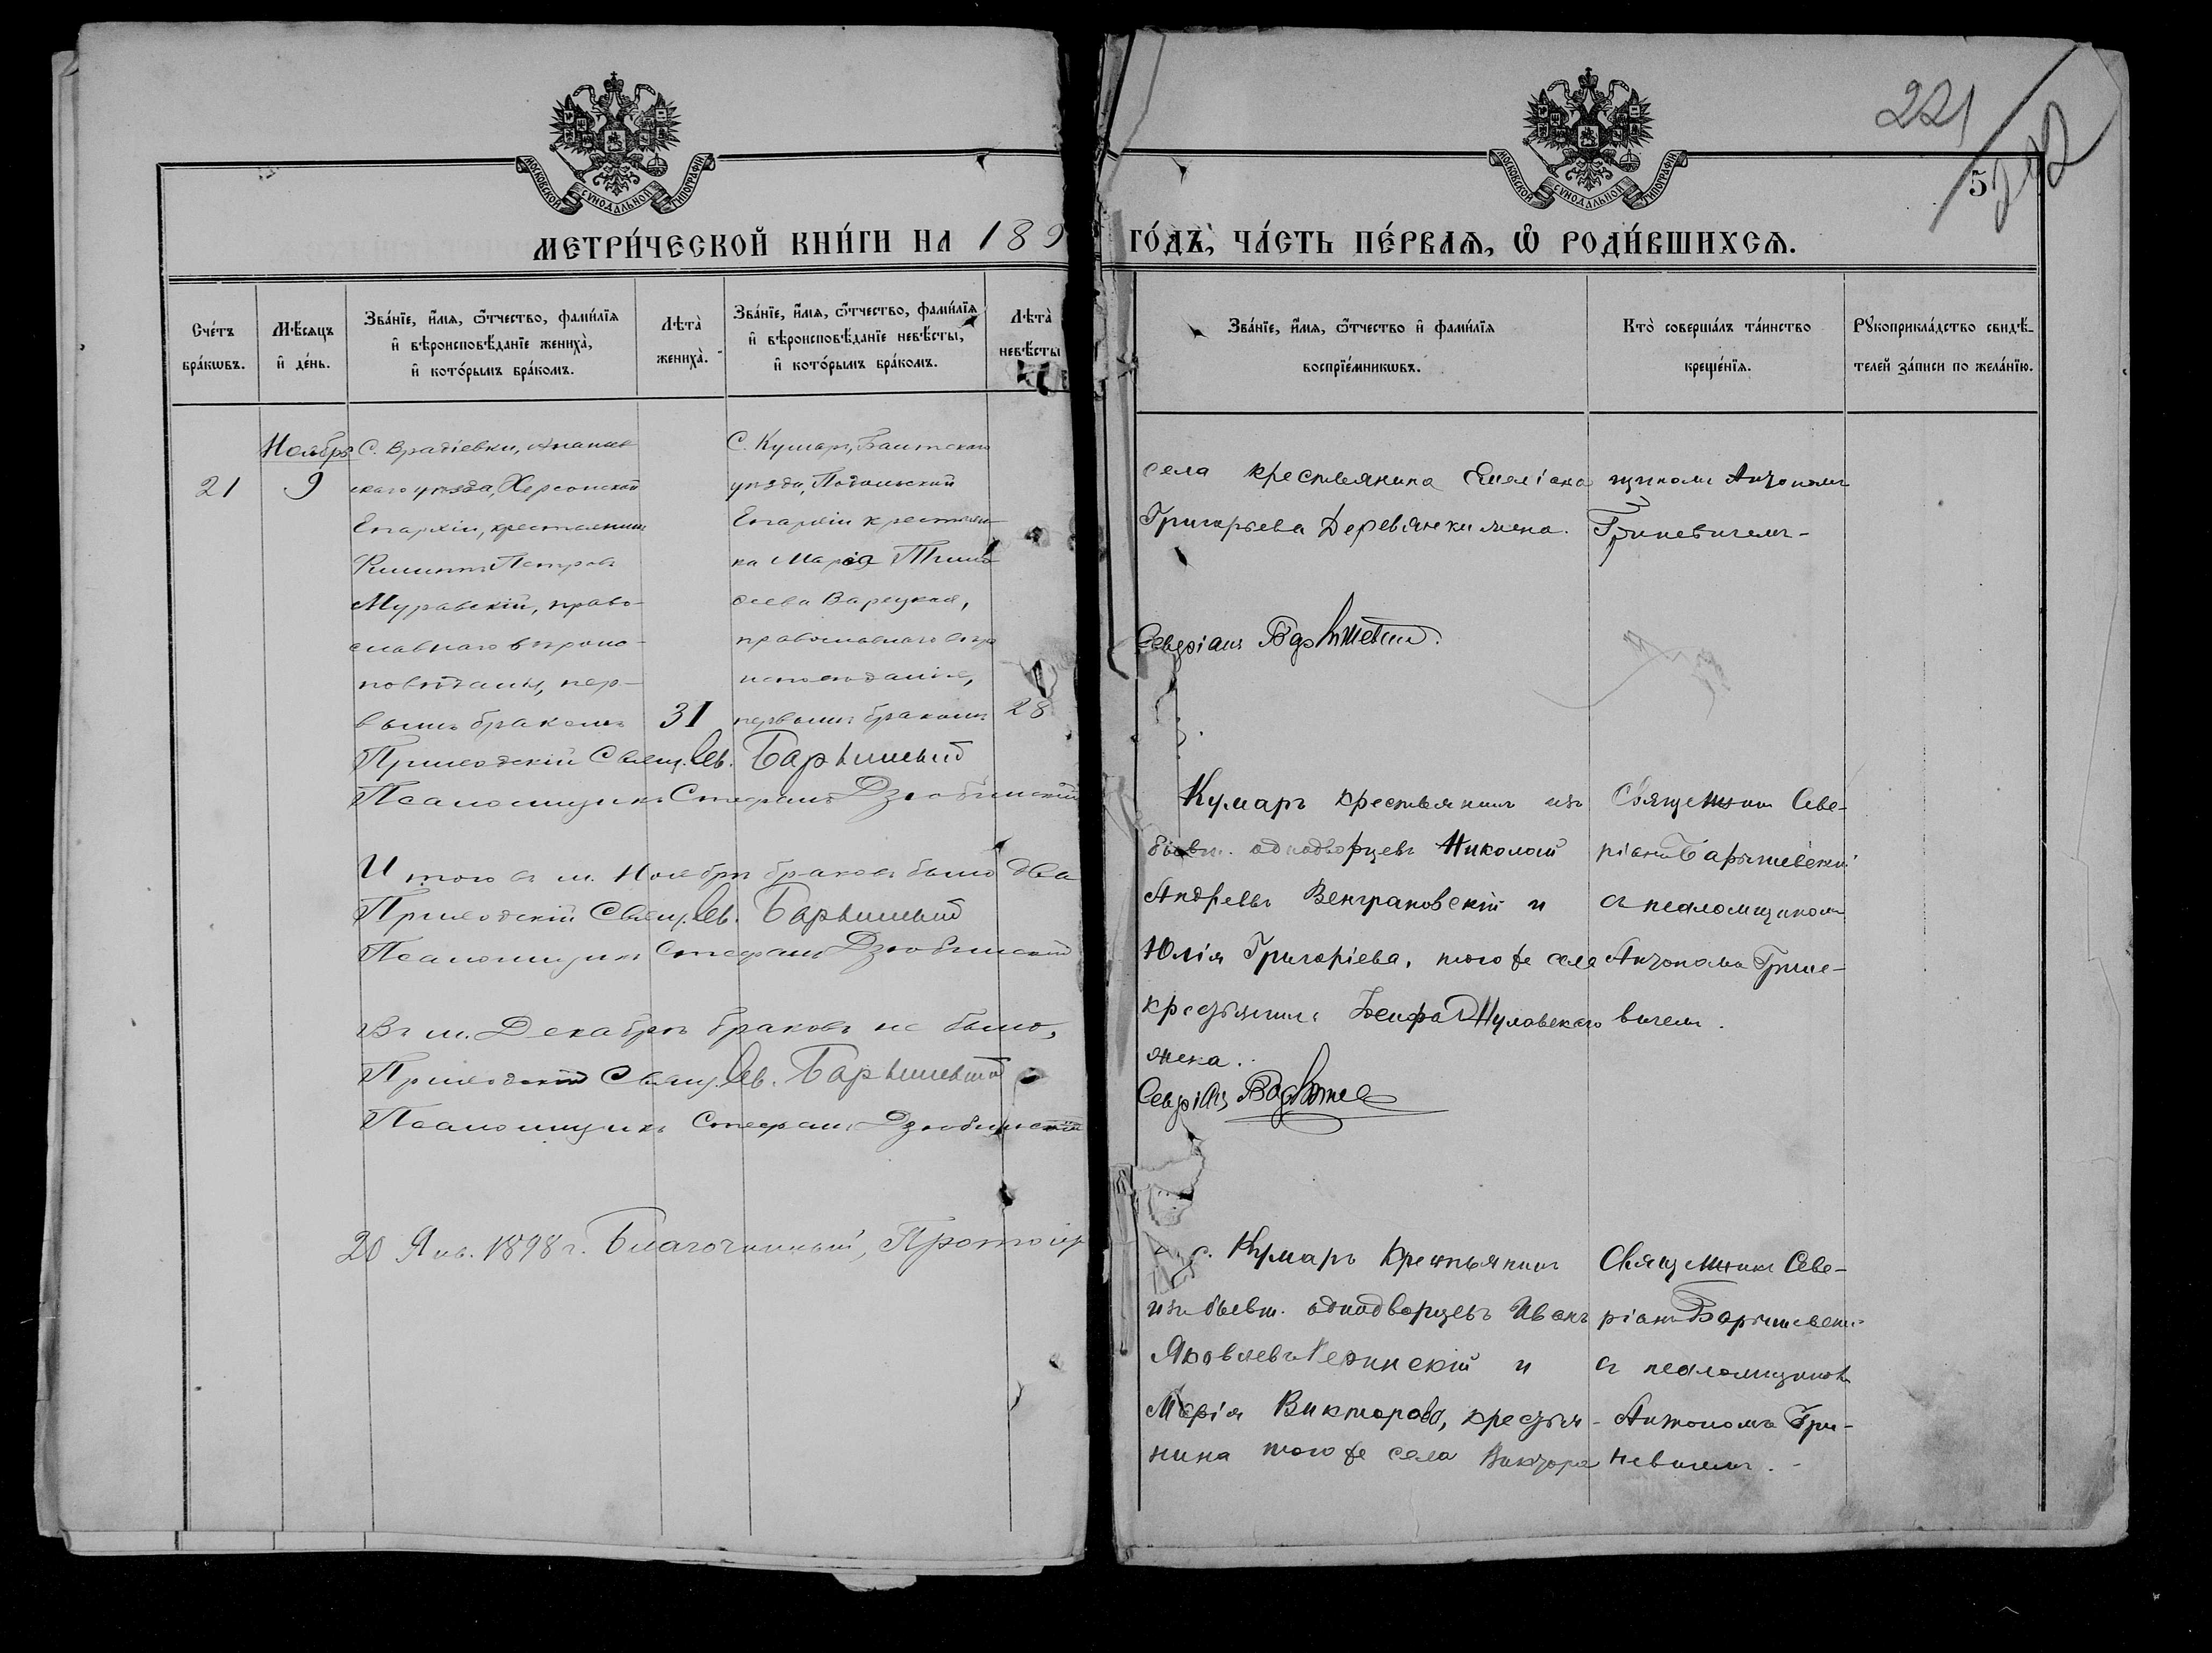 МОСКОВСКОЙ СѴНОДАЛЬНОЙ ТИПОГРАФІИ
МЕТРИ́ЧЕСКОЙ КНИ́ГИ НА 189
Сче́тъ бра́кѡвъ.
Мѣ́сяцъ и҆ де́нь.
Зва́нїе, и҆́мя, ѻ҆́тчество, фами́лїя и҆ вѣроисповѣ́данїе жениха̀, и҆ кото́рымъ бра́комъ.
Лѣта̀ жениха̀.
Зва́нїе, и҆́мя, ѻ҆́тчество, фами́лїя и҆ вѣроисповѣ́данїе невѣ́сты, и҆ кото́рымъ бра́комъ.
Лѣта̀ невѣ́сты
21
Ноябрь
9
С. Врадіевки, Ананьев
скаго уѣзда, Херсонской
Епархіи, крестьянинъ
Филиппъ Петровъ
Муравскій, право-
славнаго вѣроис-
повѣданія, пер-
вымъ бракомъ
31
С. Кумаръ, Балтскаго
уѣзда, Подольской
Епархіи крестьян-
ка Марія Тимо
ѳеева Варецкая,
православнаго вѣро
исповѣданія,
первымъ бракомъ
28
Приходскій Свящ. Сев. Барышевскій
Псаломщикъ Стефанъ Дзюбинскій
Итого въ м. Ноябрѣ браковъ было два
Приходскій Свящ. Сев. Барышевскій
Псаломщикъ Стефанъ Дзюбинскій
Въ м. Декабрѣ браковъ не было,
Приходскій Свящ. Сев. Барышевскій
Псаломщикъ Стефанъ Дзюбинскій
20 Янв. 1898 г. Благочинный, Протоіер
221
5
МОСКОВСКОЙ СѴНОДАЛЬНОЙ ТИПОГРАФІИ
ГО́ДЪ, ЧА́СТЬ ПЕ́РВАЯ, Ѽ РОДИ́ВШИХСЯ.
Зва́нїе, и҆́мя, ѻ҆́тчество и҆ фами́лїя воспрїе́мникѡвъ.
Кто̀ соверша́лъ та́инство креще́нїя.
Рꙋкоприкла́дство свидѣ́-
телей за́писи по жела́нїю.
села крестьянина Емеліана
Григорьева Деревянки жена.
щикомъ Антономъ
Гриневичемъ-
Северіанъ Барышевскій.
Кумаръ крестьянинъ изъ
бывш. однодворцевъ Николай
Андреевъ Венграновскій и
Юлія Григоріева, того же села
крестьянина Шуловскаго
жена.
Священникъ Севе-
ріанъ Барышевскій
съ псаломщикомъ
Антономъ Грине-
вичемъ.
с. Кумаръ крестьянинъ
изъ бывш. однодворцевъ Иванъ
Яковлевъ и
Марія Викторова, крестья-
нина того же села Виктора
Священникъ Севе-
ріанъ Барышевскі
съ псаломщиком
Антономъ Гри-
невичемъ.-